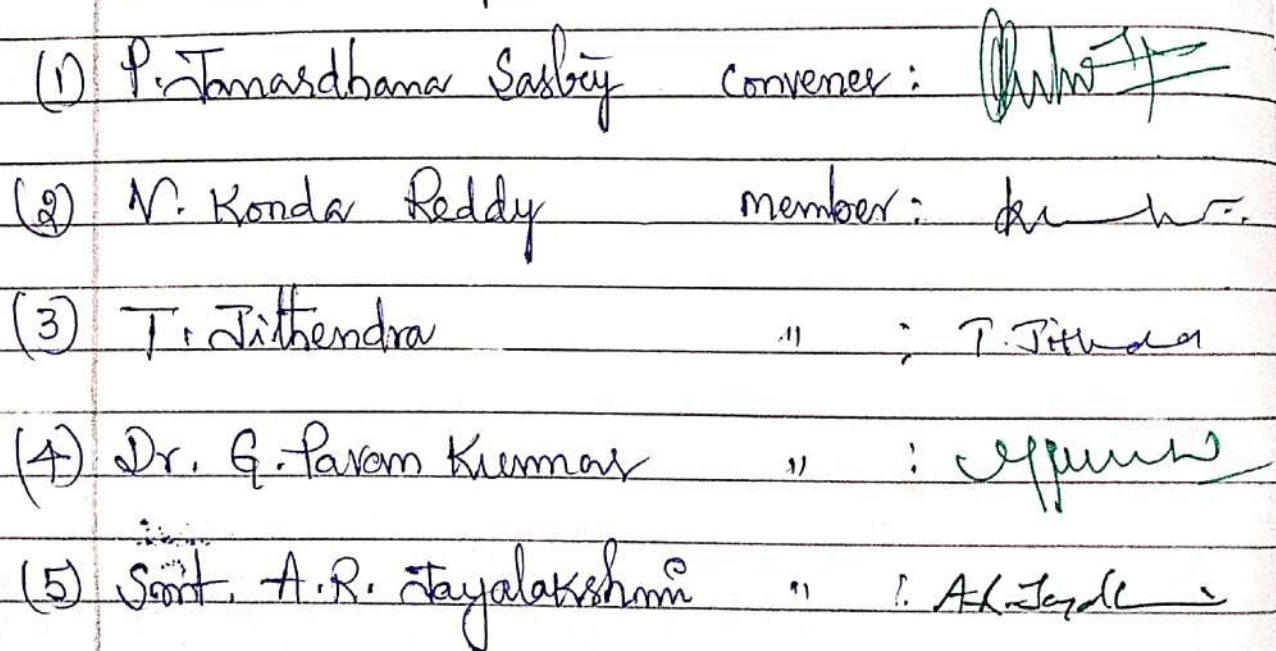 (1) P. Janardhana Sastry convener :
(2) N. Konda Reddy member :
(3) T. Jithendra " : T. Jithendra
(4) Dr. G. Pavan Kumar " :
(5) Smt. A.R. Jayalakshmi " :